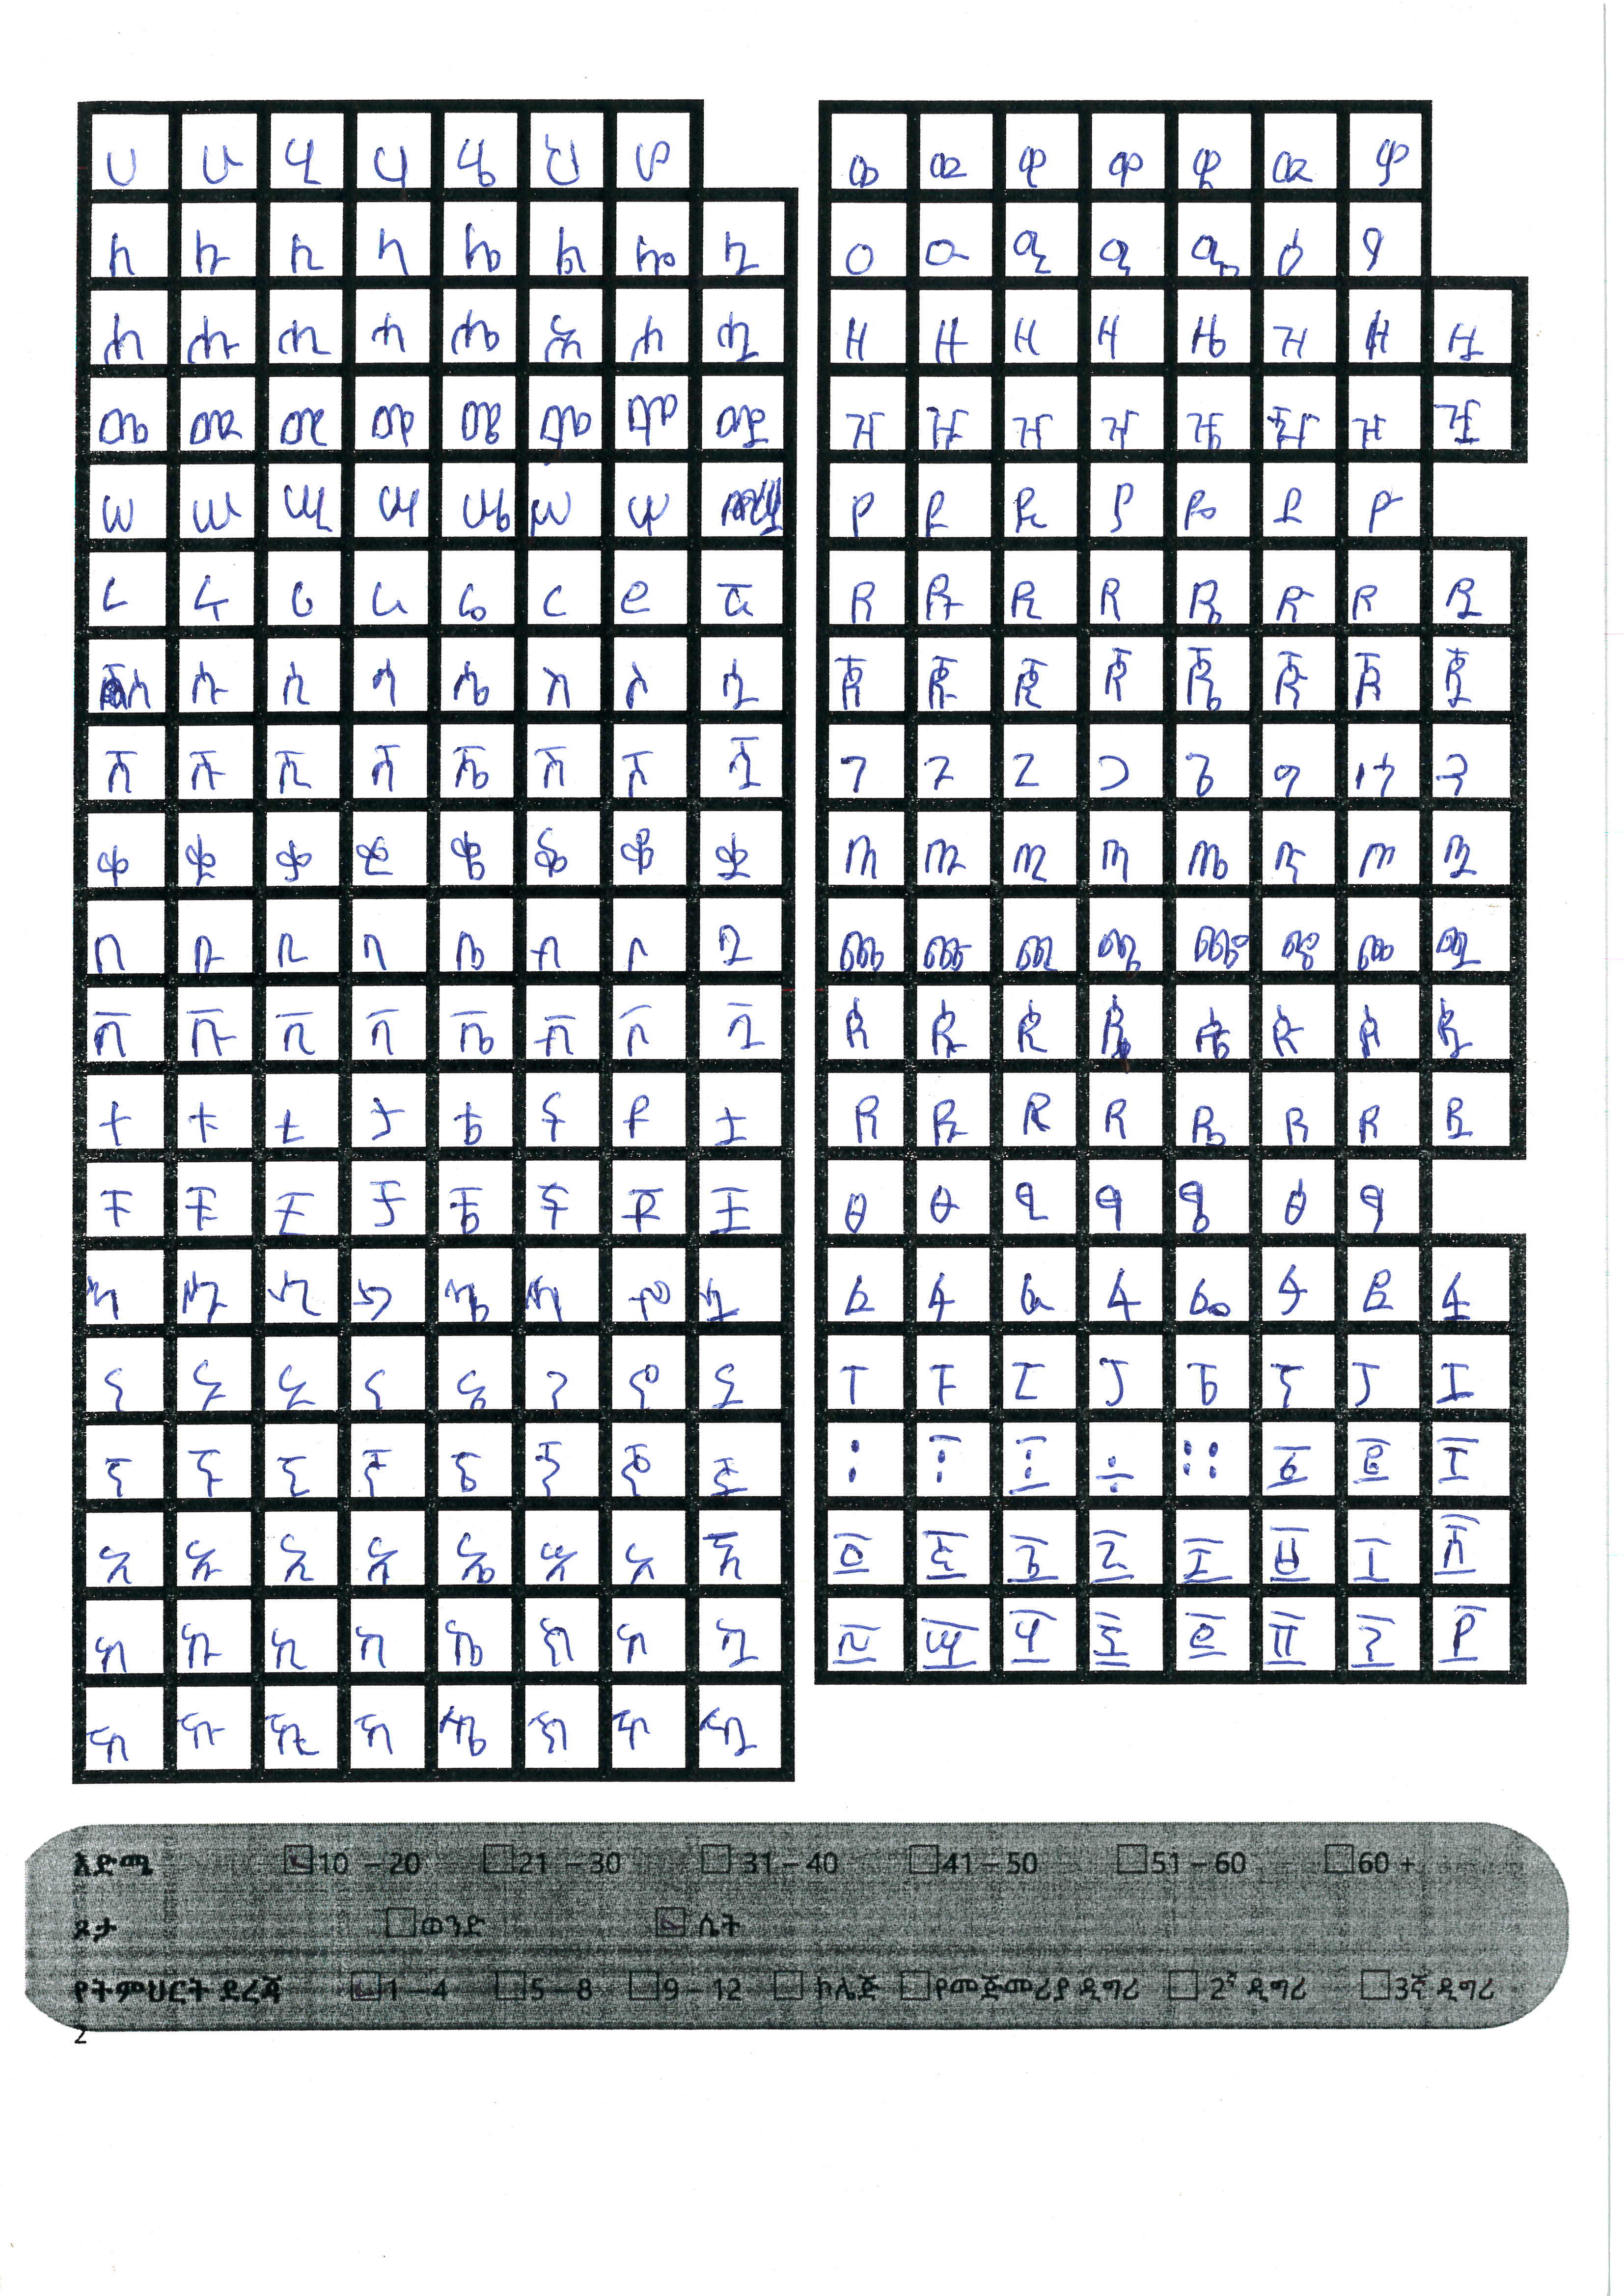 ሀ ሁ ሂ ሃ ሄ ህ ሆ
ለ ሉ ሊ ላ ሌ ል ሎ ሏ
ሐ ሑ ሒ ሓ ሔ ሕ ሖ ሗ
መ ሙ ሚ ማ ሜ ም ሞ ሟ
ሠ ሡ ሢ ሣ ሤ ሥ ሦ ሧ
ረ ሩ ሪ ራ ሬ ር ሮ ሯ
ሰ ሱ ሲ ሳ ሴ ስ ሶ ሷ
ሸ ሹ ሺ ሻ ሼ ሽ ሾ ሿ
ቀ ቁ ቂ ቃ ቄ ቅ ቆ ቋ
በ ቡ ቢ ባ ቤ ብ ቦ ቧ
ቨ ቩ ቪ ቫ ቬ ቭ ቮ ቯ
ተ ቱ ቲ ታ ቴ ት ቶ ቷ
ቸ ቹ ቺ ቻ ቼ ች ቾ ቿ
ኀ ኁ ኂ ኃ ኄ ኅ ኆ ኋ
ነ ኑ ኒ ና ኔ ን ኖ ኗ
ኘ ኙ ኚ ኛ ኜ ኝ ኞ ኟ
አ ኡ ኢ ኣ ኤ እ ኦ ኧ
ከ ኩ ኪ ካ ኬ ክ ኮ ኳ
ኸ ኹ ኺ ኻ ኼ ኽ ኾ ዃ
ወ ዉ ዊ ዋ ዌ ው ዎ
ዐ ዑ ዒ ዓ ዔ ዕ ዖ
ዘ ዙ ዚ ዛ ዜ ዝ ዞ ዟ
ዠ ዡ ዢ ዣ ዤ ዥ ዦ ዧ
የ ዩ ዪ ያ ዬ ይ ዮ
ደ ዱ ዲ ዳ ዴ ድ ዶ ዷ
ጀ ጁ ጂ ጃ ጄ ጅ ጆ ጇ
ገ ጉ ጊ ጋ ጌ ግ ጎ ጓ
ጠ ጡ ጢ ጣ ጤ ጥ ጦ ጧ
ጨ ጩ ጪ ጫ ጬ ጭ ጮ ጯ
ጰ ጱ ጲ ጳ ጴ ጵ ጶ ጷ
ጸ ጹ ጺ ጻ ጼ ጽ ጾ ጿ
ፀ ፁ ፂ ፃ ፄ ፅ ፆ
ፈ ፉ ፊ ፋ ፌ ፍ ፎ ፏ
ፐ ፑ ፒ ፓ ፔ ፕ ፖ ፗ
፡ ፣ ፤ ÷ ። ፩ ፪ ፫
፬ ፭ ፮ ፯ ፰ ፱ ፲ ፳
፴ ፵ ፶ ፷ ፸ ፹ ፺ ፻
እድሜ 10 – 20 21 – 30 31 – 40 41 – 50 51 – 60 60 +
ጾታ ወንድ ሴት
የትምህርት ደረጃ 1 – 4 5 – 8 9 – 12 ኮሌጅ የመጀመሪያ ዲግሪ 2ኛ ዲግሪ 3ኛ ዲግሪ
2